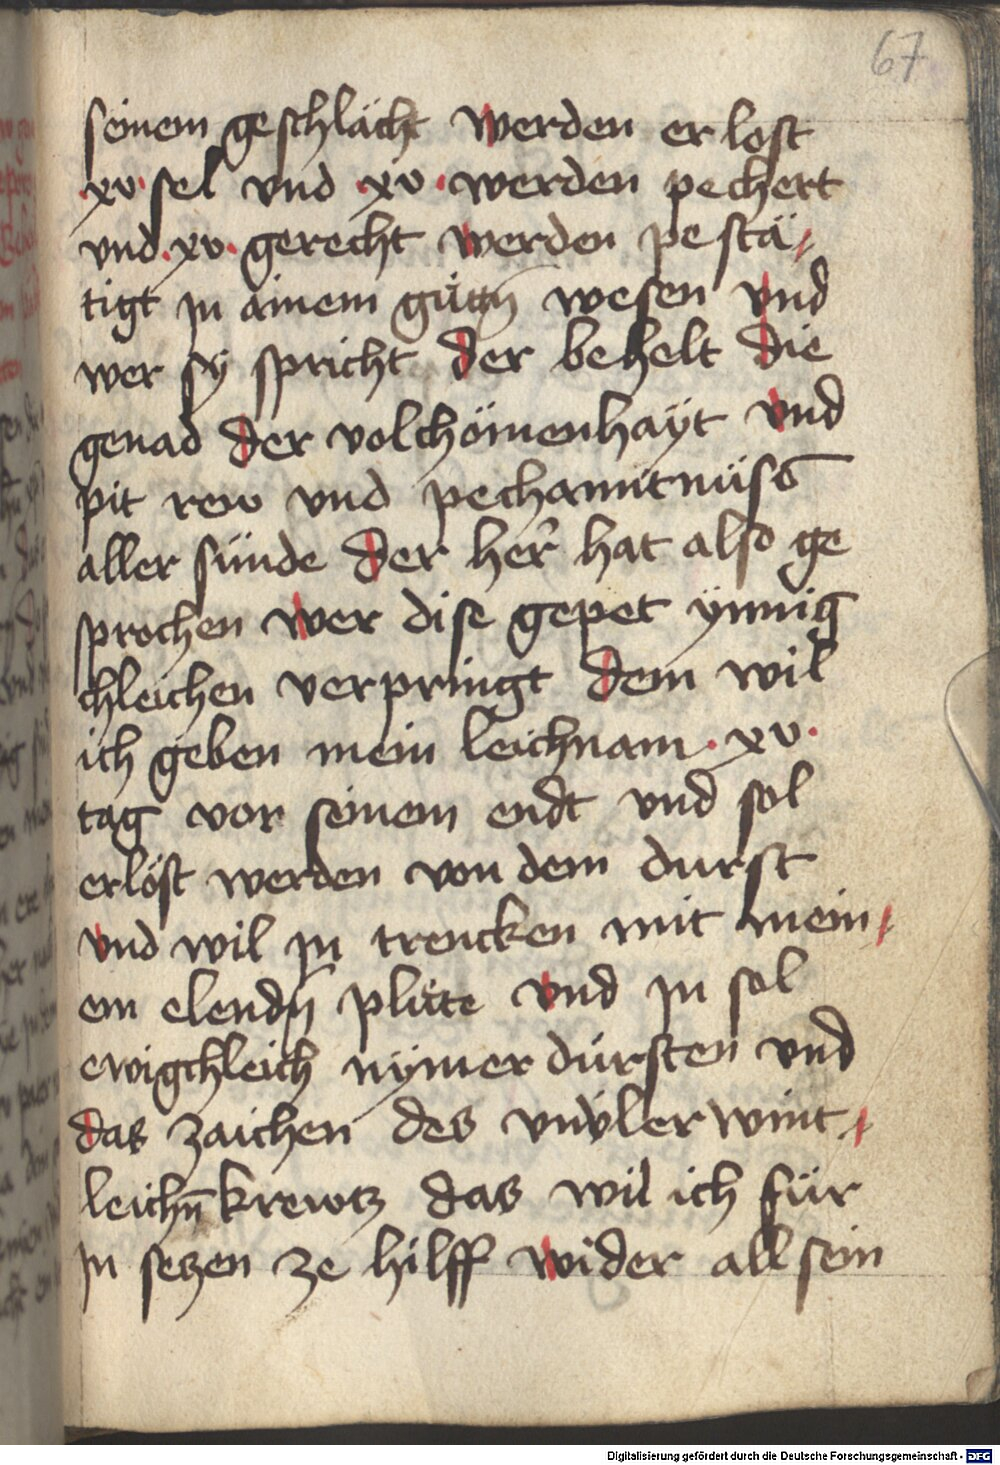 67
seinem geschlächt werden erlost
·xv· sel vnd ·xv· werden pechert
vnd ·xv· gerecht werden pestä⸗
tigt jn ainem gütn̄ wesen vnd
wer sy spricht der behelt die
genad der volchömenhaÿt vnd
pit rew vnd pechantnüsß
aller sünde der her̄ hat also ge
sprochen wer dise gepet ÿnnig
chleichen verpringt dem wil
ich geben mein leichnam ·xv·
tag vor seinem endt vnd sol
erlöst werden von dem durst
vnd wil jn trencken mit mein⸗
em elendn̄ plüte vnd jn sol
ewigchleich nÿmer dürsten vnd
das zaichen des vnüberwint⸗
leichn̄ krewtz das wil ich für
jn setzen ze hilff wider all sein
Digitalisierung gefördert durch die Deutsche Forschungsgemeinschaft - DFG